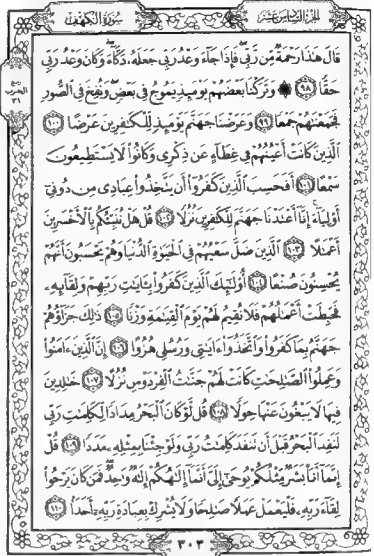 الجزء السادس عشر
سورة الكهف
قَالَ هَٰذَا رَحْمَةٌ مِّن رَّبِّي فَإِذَا جَآءَ وَعْدُ رَبِّي جَعَلَهُۥ دَكَّآءَ وَكَانَ وَعْدُ رَبِّي
حَقًّا ٩٨ ۞ وَتَرَكْنَا بَعْضَهُمْ يَوْمَئِذٍ يَمُوجُ فِي بَعْضٍ وَنُفِخَ فِي ٱلصُّورِ
فَجَمَعْنَٰهُمْ جَمْعًا ٩٩ وَعَرَضْنَا جَهَنَّمَ يَوْمَئِذٍ لِّلْكَٰفِرِينَ عَرْضًا ١٠٠
ٱلَّذِينَ كَانَتْ أَعْيُنُهُمْ فِي غِطَآءٍ عَن ذِكْرِي وَكَانُوا۟ لَا يَسْتَطِيعُونَ
سَمْعًا ١٠١ أَفَحَسِبَ ٱلَّذِينَ كَفَرُوٓا۟ أَن يَتَّخِذُوا۟ عِبَادِي مِن دُونِيٓ
أَوْلِيَآءَ إِنَّآ أَعْتَدْنَا جَهَنَّمَ لِلْكَٰفِرِينَ نُزُلًا ١٠٢ قُلْ هَلْ نُنَبِّئُكُم بِٱلْأَخْسَرِينَ
أَعْمَٰلًا ١٠٣ ٱلَّذِينَ ضَلَّ سَعْيُهُمْ فِي ٱلْحَيَوٰةِ ٱلدُّنْيَا وَهُمْ يَحْسَبُونَ أَنَّهُمْ
يُحْسِنُونَ صُنْعًا ١٠٤ أُو۟لَٰٓئِكَ ٱلَّذِينَ كَفَرُوا۟ بِـَٔايَٰتِ رَبِّهِمْ وَلِقَآئِهِۦ
فَحَبِطَتْ أَعْمَٰلُهُمْ فَلَا نُقِيمُ لَهُمْ يَوْمَ ٱلْقِيَٰمَةِ وَزْنًا ١٠٥ ذَٰلِكَ جَزَآؤُهُمْ
جَهَنَّمُ بِمَا كَفَرُوا۟ وَٱتَّخَذُوٓا۟ ءَايَٰتِي وَرُسُلِي هُزُوًا ١٠٦ إِنَّ ٱلَّذِينَ ءَامَنُوا۟
وَعَمِلُوا۟ ٱلصَّٰلِحَٰتِ كَانَتْ لَهُمْ جَنَّٰتُ ٱلْفِرْدَوْسِ نُزُلًا ١٠٧ خَٰلِدِينَ
فِيهَا لَا يَبْغُونَ عَنْهَا حِوَلًا ١٠٨ قُل لَّوْ كَانَ ٱلْبَحْرُ مِدَادًا لِّكَلِمَٰتِ رَبِّي
لَنَفِدَ ٱلْبَحْرُ قَبْلَ أَن تَنفَدَ كَلِمَٰتُ رَبِّي وَلَوْ جِئْنَا بِمِثْلِهِۦ مَدَدًا ١٠٩ قُلْ
إِنَّمَآ أَنَا۠ بَشَرٌ مِّثْلُكُمْ يُوحَىٰٓ إِلَيَّ أَنَّمَآ إِلَٰهُكُمْ إِلَٰهٌ وَٰحِدٌ فَمَن كَانَ يَرْجُوا۟
لِقَآءَ رَبِّهِۦ فَلْيَعْمَلْ عَمَلًا صَٰلِحًا وَلَا يُشْرِكْ بِعِبَادَةِ رَبِّهِۦٓ أَحَدًۢا ١١٠
ربع
الحزب
٣١
٣٠٣